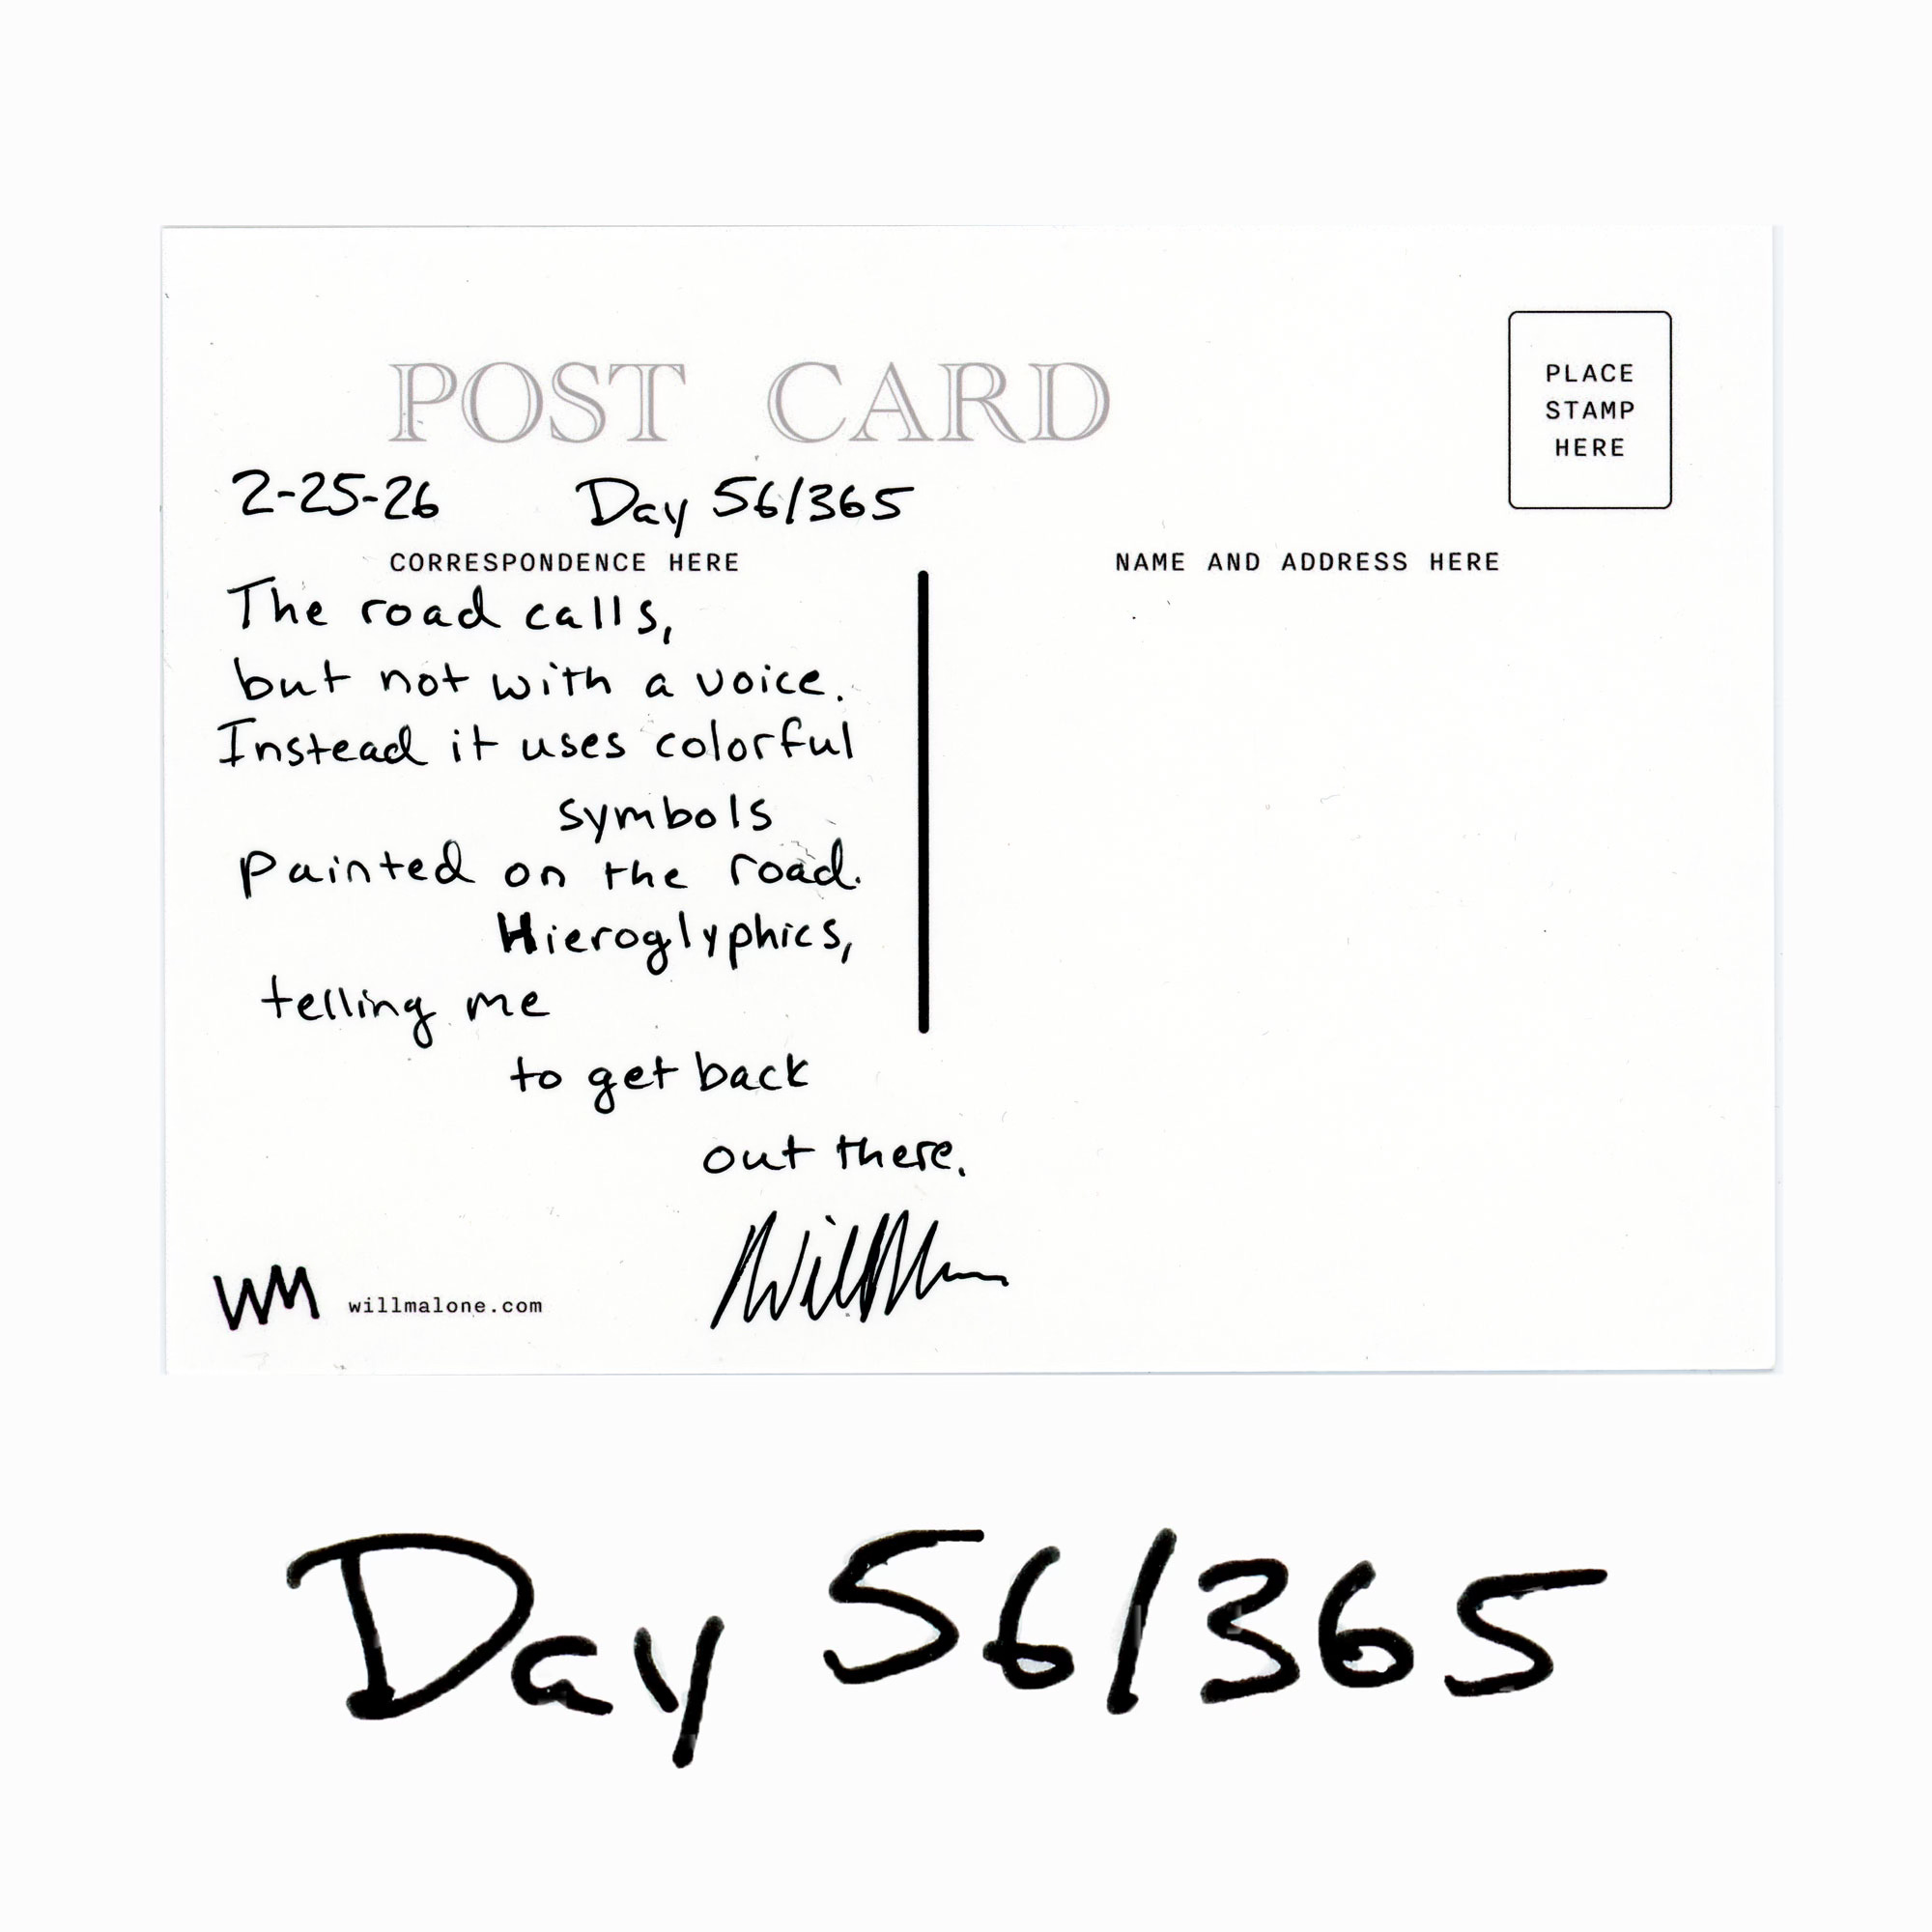 POST CARD
PLACE
STAMP
HERE
2-25-26 Day 56/365
CORRESPONDENCE HERE
NAME AND ADDRESS HERE
The road calls,
but not with a voice.
Instead it uses colorful
symbols
painted on the road.
Hieroglyphics,
telling me
to get back
out there.
WM willmalone.com
Day 56/365